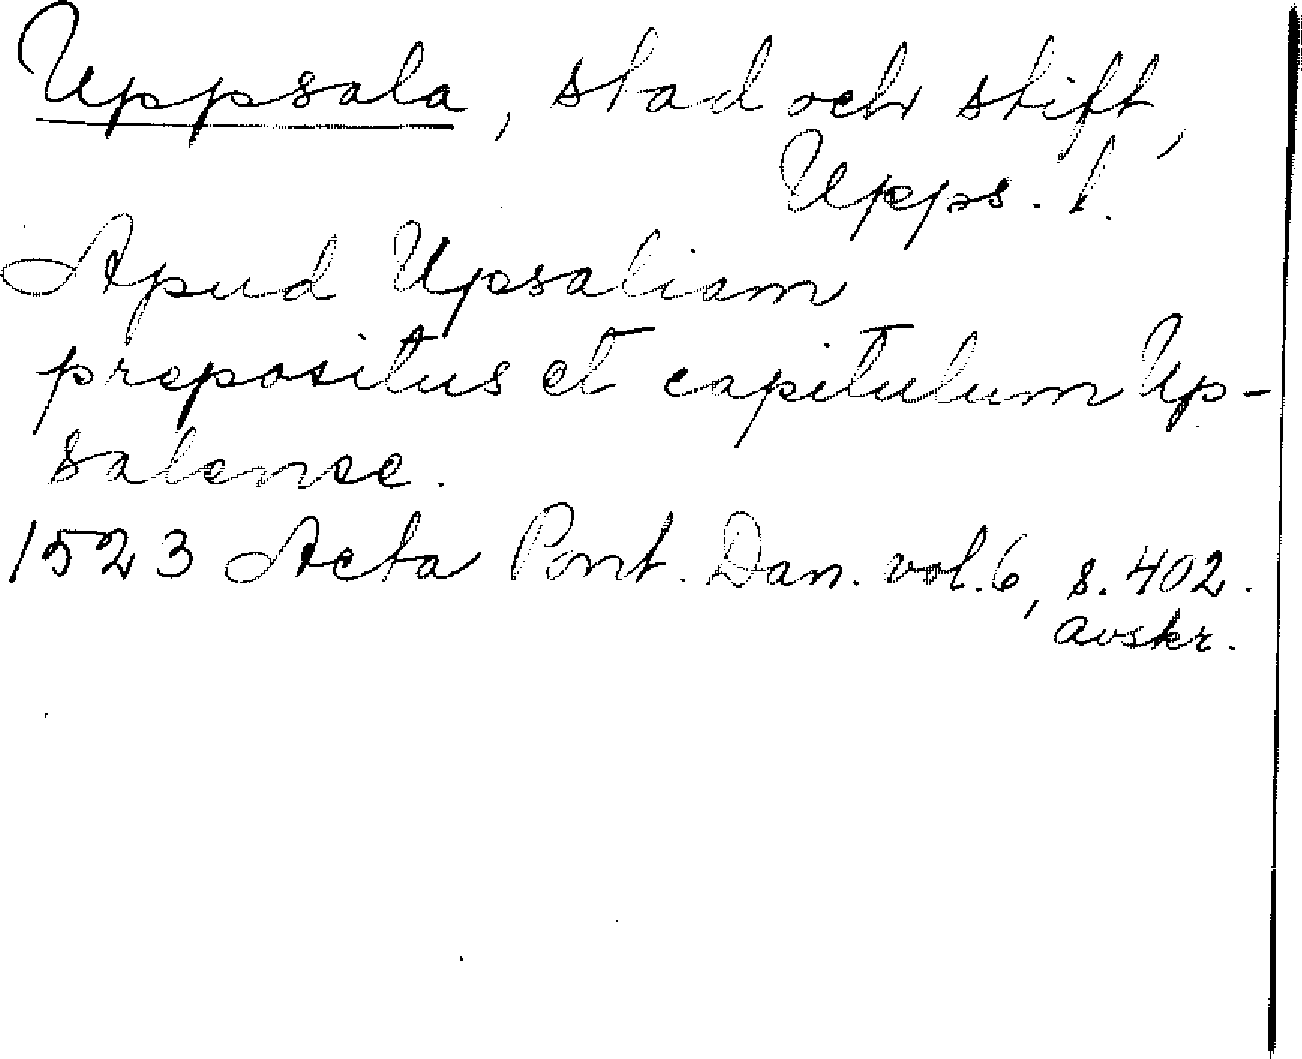 Uppsala, stad och stift,
Upps. l.
Apud Upsaliam
prepositus et capitulum Up-
salense.
1523 Acta Pont. Dan. vol. 6, s. 402.
avskr.